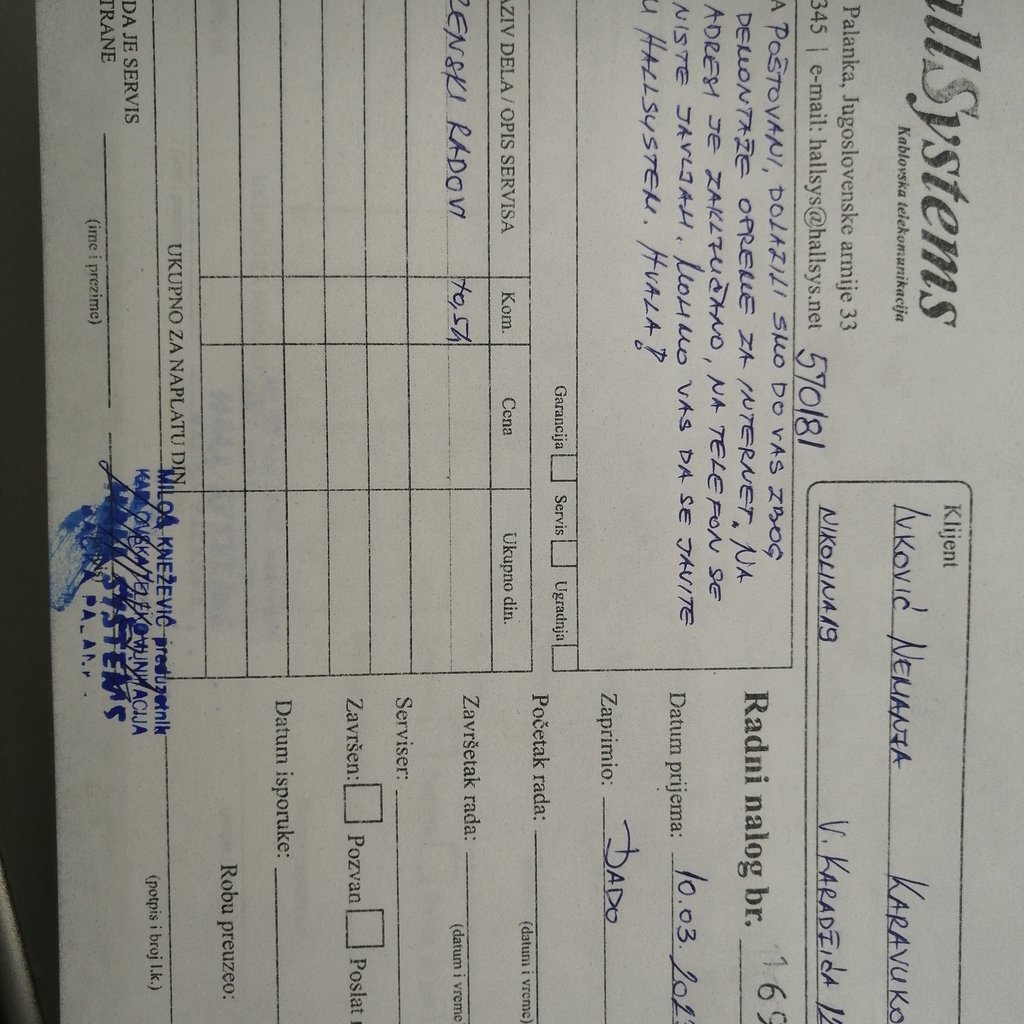 allSystems
Kablovska telekomunikacija
Palanka, Jugoslovenske armije 33
345 | e-mail: hallsys@hallsys.net
570/81
Klijent
NEMANJA KARAVUKO
NIKOLINA 19 V. KARADŽIĆA 12
A POŠTOVANI, DOLAZILI SMO DO VAS ZBOG
DEMONTAŽE OPREME ZA INTERNET. NA
ADRESI JE ZAKLJUČANO, NA TELEFON SE
NISTE JAVLJALI. MOLIMO VAS DA SE JAVITE
U HALLSYSTEM. HVALA!
Garancija Servis Ugradnja
Radni nalog br. 169
Datum prijema: 10.03.
Zaprimio: DADO
Početak rada:
(datum i vreme)
Završetak rada:
(datum i vreme
Serviser:
Završen: Pozvan Poslat
Datum isporuke:
Robu preuzeo:
(potpis i broj l.k.)
AZIV DELA / OPIS SERVISA Kom. Cena Ukupno din.
ZENSKI RADOVI
UKUPNO ZA NAPLATU DIN
DA JE SERVIS
TRANE
(ime i prezime)
MILOŠ KNEŽEVIĆ preduzetnik
KABLOVSKA TELEKOMUNIKACIJA
SYSTEMS
PALAN